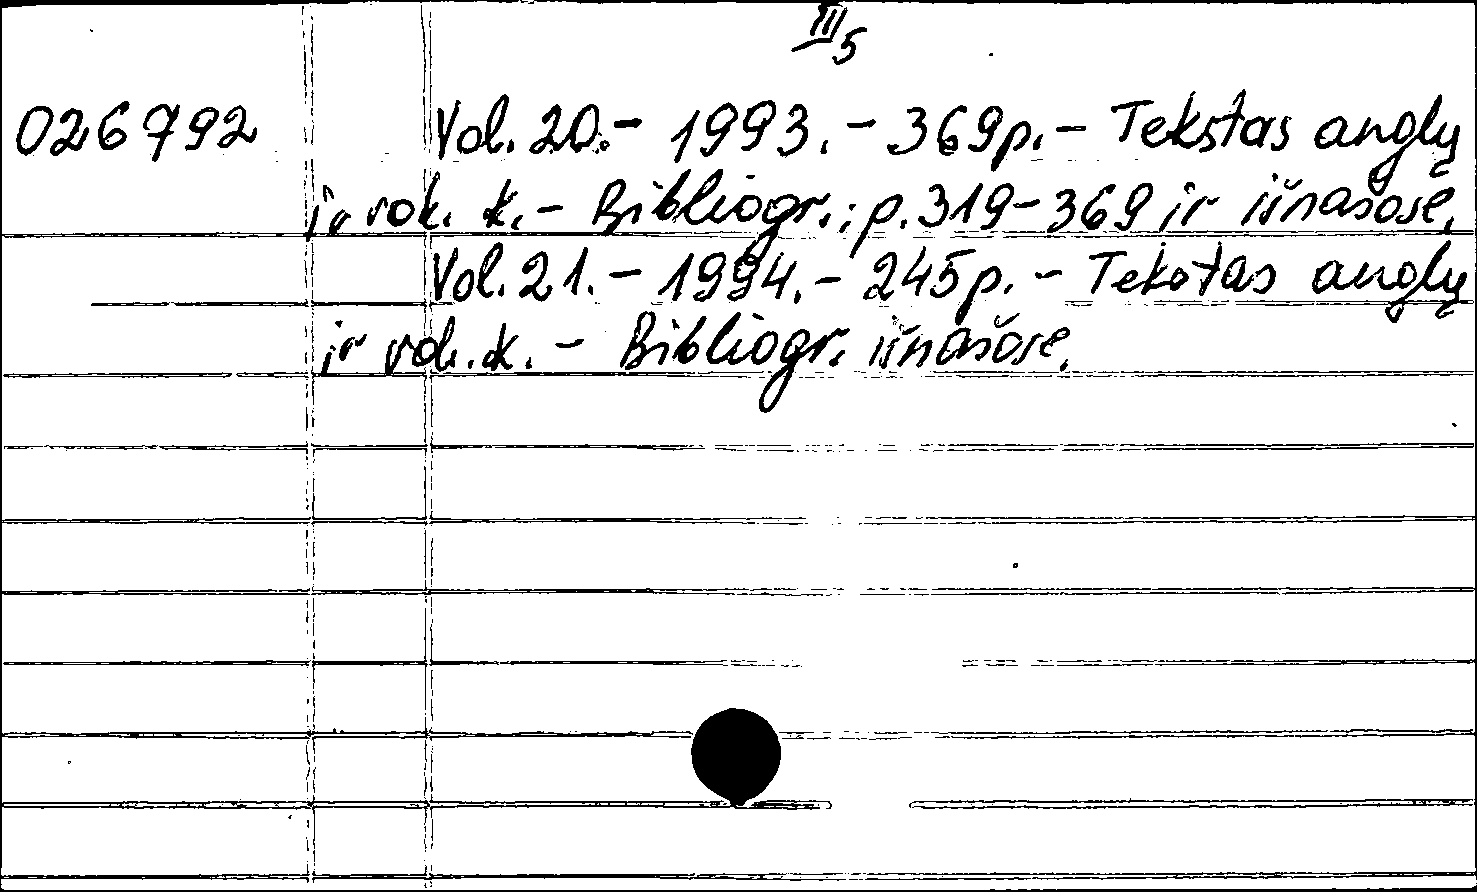 III/5
026792 Vol. 20.- 1993. - 369p. - Tekstas anglų
ir vok. k. - Bibliogr.: p. 319-369 ir išnašose.
Vol. 21. - 1994. - 245p. - Tekstas anglų
ir vok. k. - Bibliogr. išnašose.